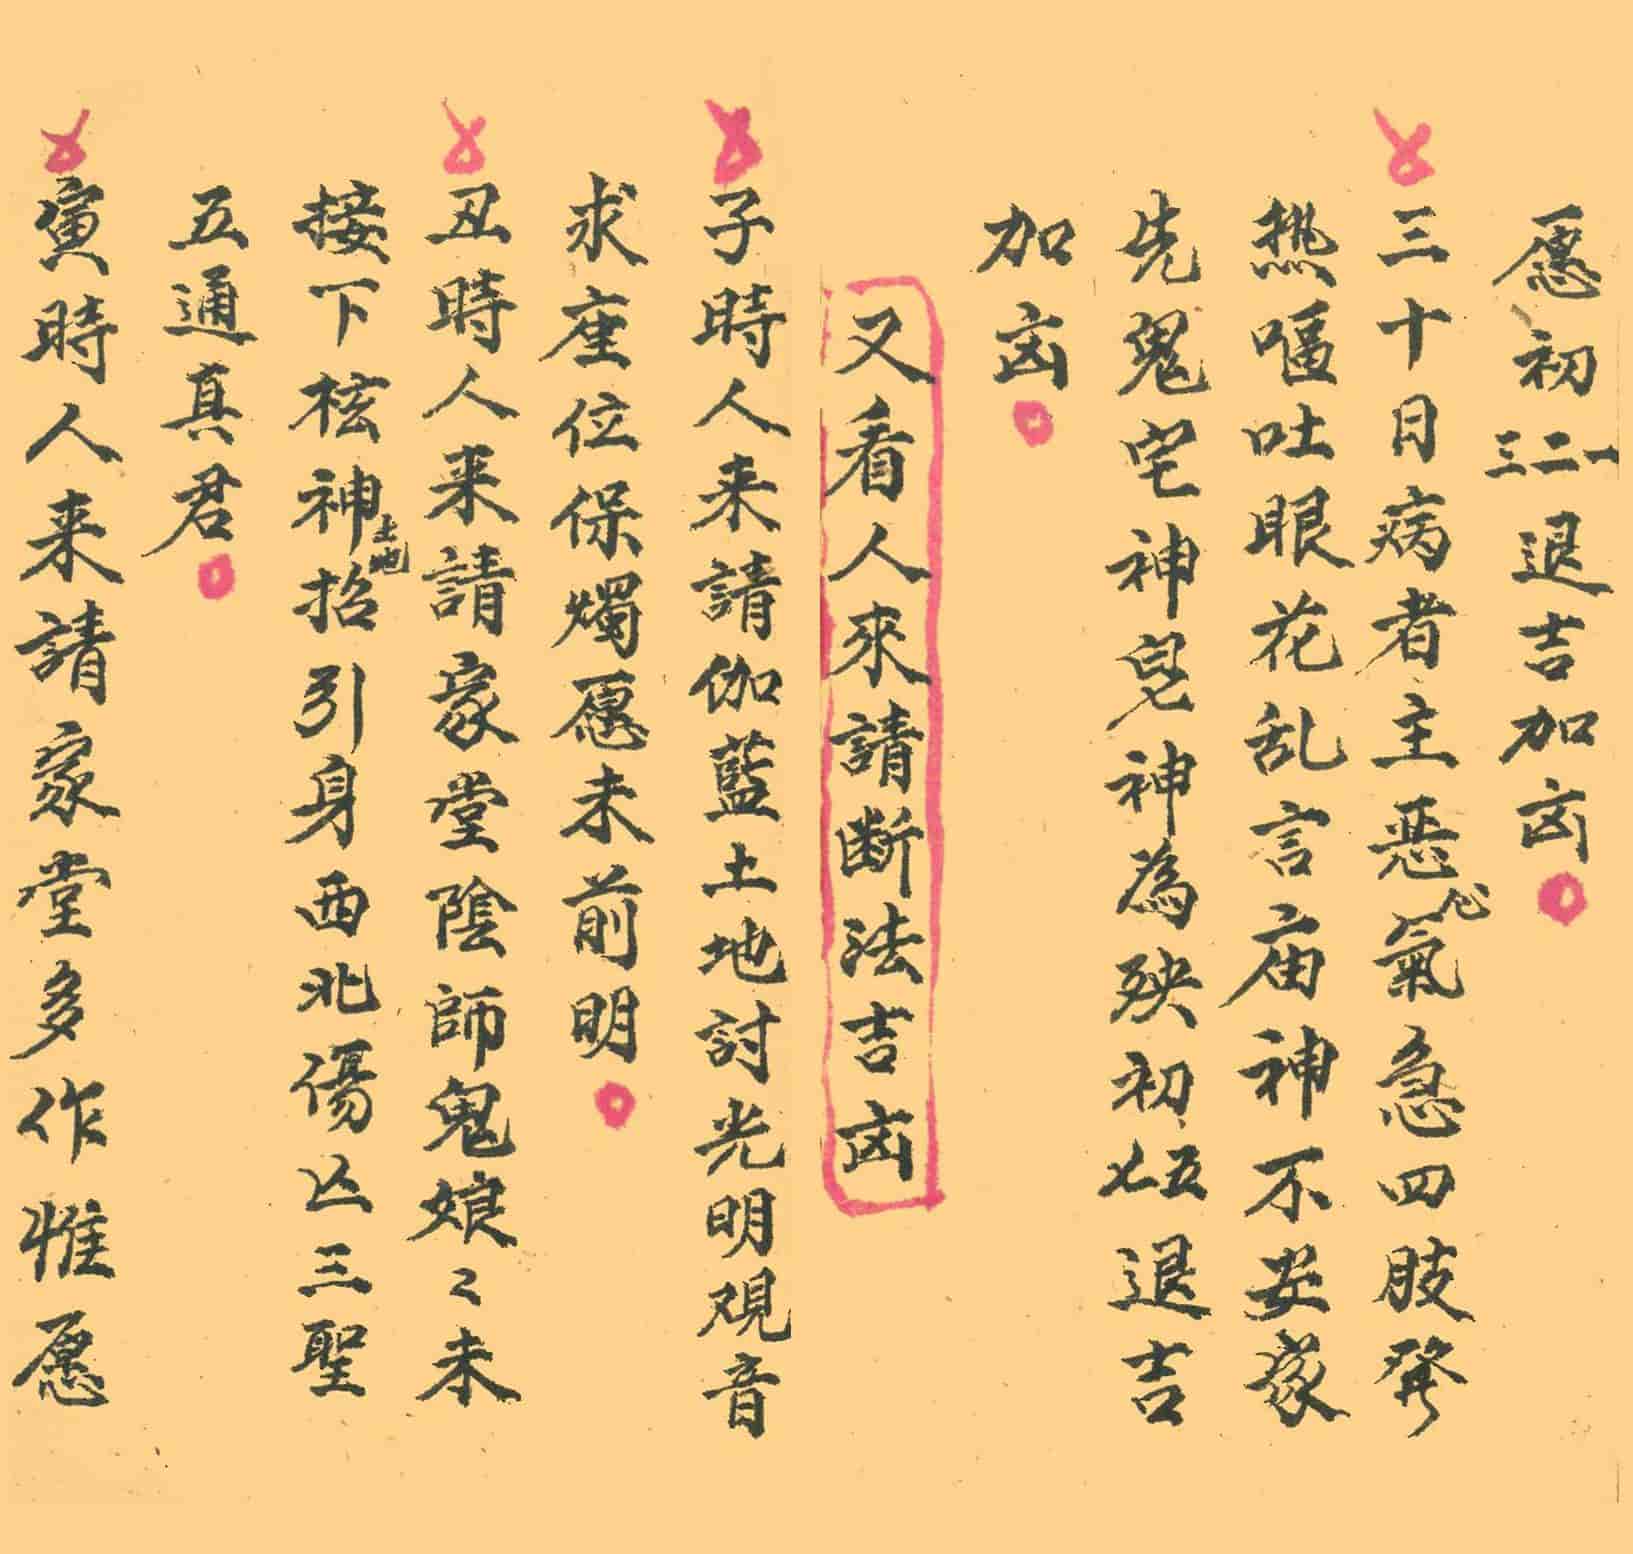 愿初一二三退吉加凶
三十日病者主恶心氣急四肢發
热嘔吐眼花乱言庙神不安家
先鬼宅神兒神為殃初五七退吉
加凶
又看人來請断法吉凶
子時人来請伽藍土地討光明观音
求座位保燭愿未前明
丑時人来請家堂陰師鬼娘〻未
接下坛神土地招引身西北傷亡三聖
五通真君
寅時人来請家堂多作惟愿